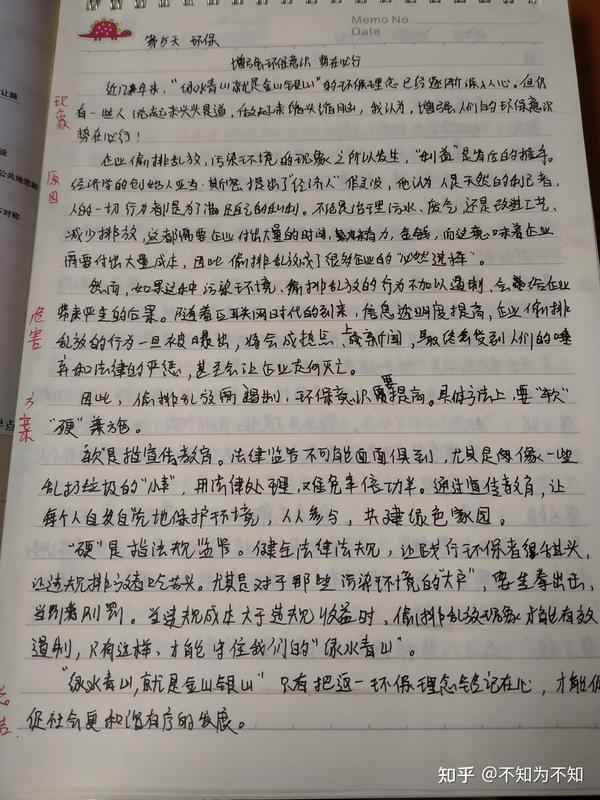 Memo No.
Date
第5天 环保
增强环保意识 势在必行
近几年来，“绿水青山就是金山银山”的环保理念已经逐渐深入人心。但仍
现象
有一些人说起来头头是道，做起来缩头缩脑，我认为，增强人们的环保意识
势在必行！
企业偷排乱放，污染环境的现象之所以发生，“利益”是背后的推手。
原因
经济学的创始人亚当·斯密提出了“经济人”假设，他认为人是天然的利己者，
人的一切行为都是为了满足自己的私利。不论是治理污水、废气，还是改进工艺、
减少排放，这都需要企业付出大量的时间，精力，金钱，而这意味着企业
需要付出大量成本，因此偷排乱放成了很多企业的“必然选择”。
然而，如果这种污染环境、偷排乱放的行为不加以遏制，会给企业
危害
带来严重的后果。随着互联网时代的到来，信息透明度提高，企业偷排
乱放的行为一旦被曝出，将会成热点新闻，最终会受到人们的唾
弃和法律的严惩，甚至会让企业走向灭亡。
因此，偷排乱放需遏制，环保意识要提高。具体方法上，要“软”
方案
“硬”兼施。
软是指宣传教育。法律监管不可能面面俱到，尤其是像一些
乱扔垃圾的“小事”，用法律处理，难免事倍功半。通过宣传教育，让
每个人自发自觉地保护环境，人人参与，共建绿色家园。
“硬”是指法规监管。健全法律法规，让践行环保者得甜头，
让违规排放者吃苦头。尤其是对于那些污染环境的“大户”，要重拳出击，
当罚者则罚。当违规成本大于违规收益时，偷排乱放现象才能有效
遏制，只有这样，才能守住我们的“绿水青山”。
“绿水青山，就是金山银山”只有把这一环保理念铭记在心，才能促
使社会更和谐有序的发展。
知乎 @不知为不知